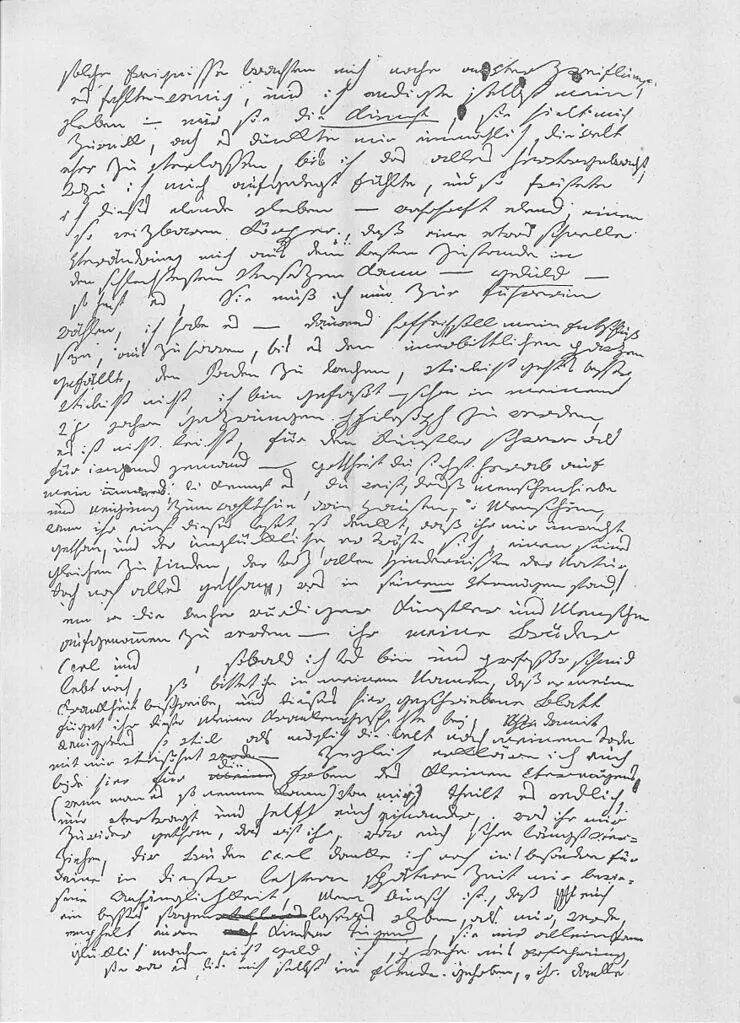 solche Ereignisse brachten mich nahe an Verzweiflung,
es fehlte wenig, und ich endigte selbst mein
Leben — nur sie die Kunst, sie hielt mich
zurück, ach es dünkte mir unmöglich, die Welt
eher zu verlassen, bis ich das alles hervorgebracht,
wozu ich mich aufgelegt fühlte, und so fristete
ich dieses elende Leben — wahrhaft elend, einen
so reizbaren Körper, daß eine etwas schnelle
Verändrung mich aus dem besten Zustande in
den schlechtesten versezen kann — geduld —
so heist es, Sie muß ich nun zur führerin
wählen, ich habe es — daurend hoffe ich, soll mein Entschluß
seyn, auszuharren, bis es den unerbittlichen parzen
gefällt, den Faden zu brechen, vieleicht geht's besser,
vieleicht nicht, ich bin gefaßt — schon in meinem
28 Jahre gezwungen Philosoph zu werden,
es ist nicht leicht, für den Künstler schwerer als
für irgend jemand — gottheit du siehst herab auf
mein inneres, du kennst es, du weist, daß menschenliebe
und neigung zum wohlthun drin Hausen, o Menschen,
wenn ihr einst dieses leset, so denkt, daß ihr mir unrecht
gethan, und der unglückliche, er tröste sich, einen seines
gleichen zu finden, der troz allen Hindernissen der Natur,
doch noch alles gethan, was in seinem Vermögen stand,
um in die Reihe würdiger Künstler und Menschen
aufgenommen zu werden — ihr meine Brüder
Carl und , sobald ich tod bin und professor schmid
lebt noch, so bittet ihn in meinem Namen, daß er meine
Krankheit beschreibe, und dieses hier geschriebene Blatt
füget ihr dieser meiner Krankengeschichte bei, damit
wenigstens so viel als möglich die Welt nach meinem Tode
mit mir versöhnt werde — zugleich erkläre ich euch
beide hier für die Erben des kleinen Vermögens,
(wenn man es so nennen kann) von mir, theilt es redlich,
und vertragt und helft euch einander, was ihr mir
zuwider gethan, das wist ihr, war euch schon längst ver-
ziehen, dir Bruder Carl danke ich noch in's besondre für
deine in dieser leztern spätern Zeit mir bewie-
sene Anhänglichkeit, Mein Wunsch ist, daß euch
ein bessers sorgenloseres Leben, als mir, werde,
emphelt euren Kindern Tugend, sie nur allein kann
glücklich machen, nicht geld, ich spreche aus Erfahrung,
sie war es, die mich selbst im Elende gehoben, ihr danke